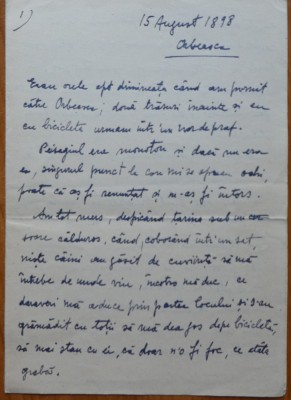 1)
15 August 1898
Orbeasca
Erau orele opt dimineața când am pornit
către Orbeasca; două trăsuri înainte și eu
cu bicicleta urmam într'un nor de praf.
Peisagiul era monoton și dacă nu era
ea, singurul punct la care mi se opreau ochii,
poate că aș fi renunțat și m-aș fi întors.
Am tot mers, despicând țarina sub un
soare călduros, când, coborând într'un sat,
niște câini au găsit de cuviință să mă
întrebe de unde viu, încotro mă duc, ce
daraveri mă aduce prin partea locului și s-au
grămădit cu toții să mă dea jos depe bicicletă,
să mai stau cu ei, că doar n'o fi foc, ce atâta
grabă.